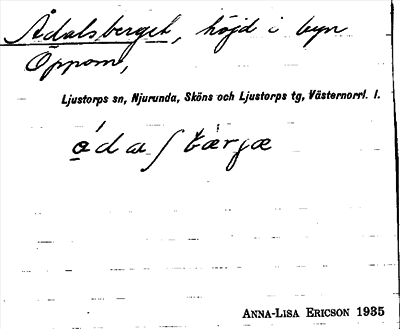 Ådalsberget, höjd i byn
Öppom,
Ljustorps sn, Njurunda, Sköns och Ljustorps tg, Västernorrl. l.
ANNA-LISA ERICSON 1935